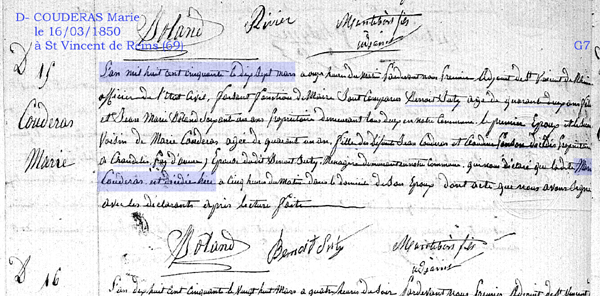 D- COUDERAS Marie
le 16/03/1850
à St Vincent de Reins (69)
G7
Boland Rivier Montibert fils
adjoint
D 15
Couderas
Marie
L'an mil huit cent cinquante le dix sept mars a onze heures du pardevant nous Premier Adjoint de St Vincent de
officier de l'état civil, faisant fonction de Maire Sont comparus Benoit Suty agé de quarante deux ans fils
et Jean Marie Boland ans Proprietaire demeurant tous deux en notre Commune, le premier Epoux et le
Voisin de Marie Couderas agée de quarante un ans, fille de defunt Jean Couderas et Claudine
a (Puy de dome) Epouse dudit Benoit Suty, Menagère demeurant en notre commune, qui nous ont déclaré que ladite Marie
Couderas, est décédée hier a cinq heures du matin dans le domicile de Son Epoux dont acte que nous avons Signé
avec les déclarants après lecture faite
Boland Benoit Suty Montibert fils
adjoint
D 16
L'an dix huit cent cinquante le vingt huit Mars a quatre heures du Soir Pardevant nous Premier Adjoint de St Vincent